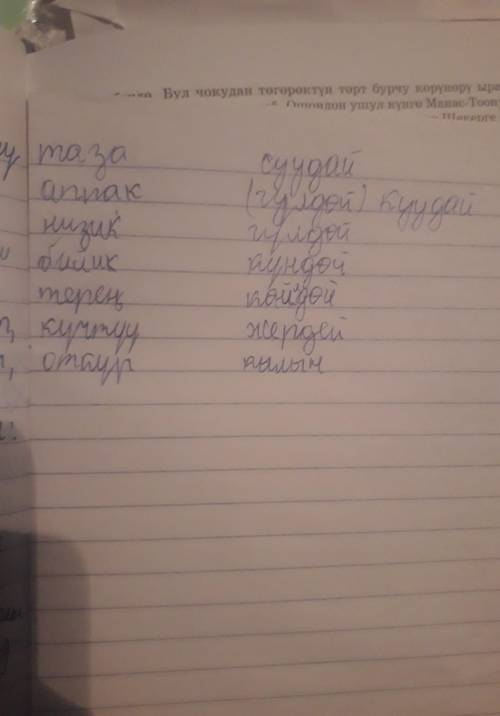 Бул чокудан төгөрөктүн төрт бурчу көрүнөрү ыра
ушул күнгө Манас-Тоону
Шекерге
таза суудай
аппак (гүлдөй) куудай
низик гүлдөй
билик күндөй
терең көйдөй
күчтүү жердей
откур кылыч